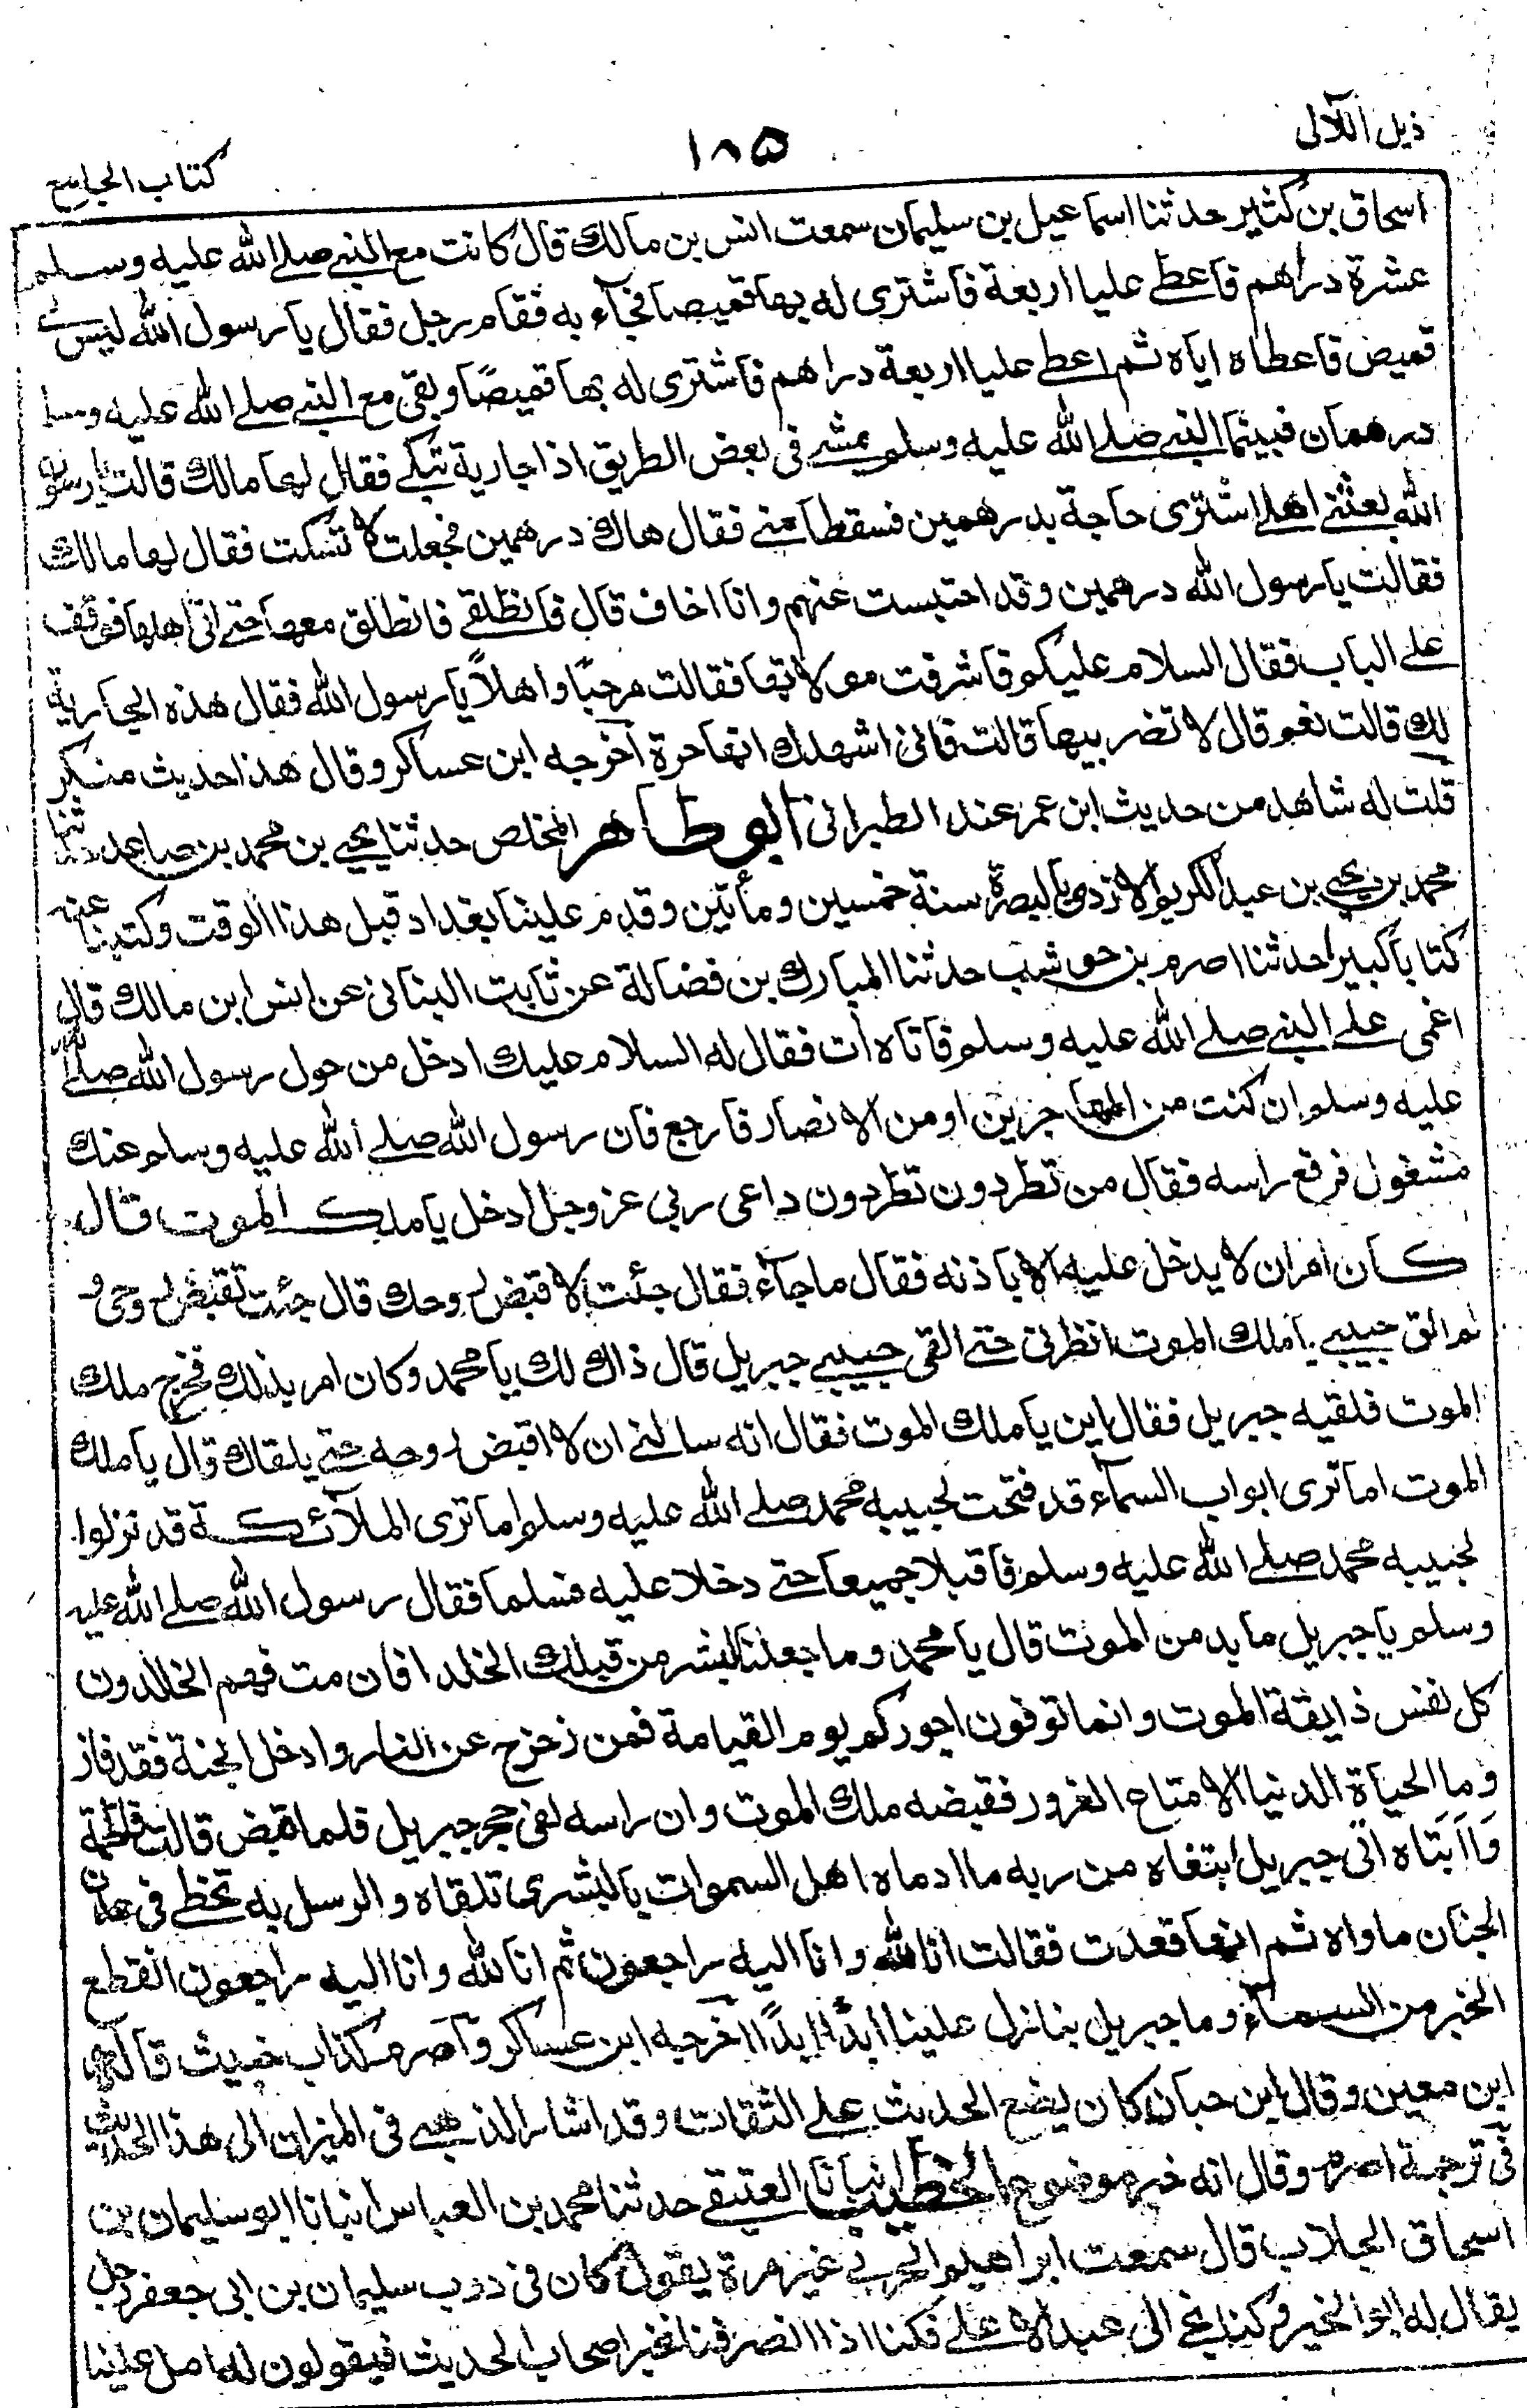 ذيل اللآلى
١٨٥
كتاب الجامع
اسحاق بن كثير حدثنا اسماعيل بن سليمان سمعت انس بن مالك قال كانت مع النبي صلى الله عليه وسلم
عشرة دراهم فاعطى عليا اربعة فاشترى له بها قميصا فجآء به فقام رجل فقال يا رسول الله ليس لى
قميص فاعطاه اياه ثم اعطى عليا اربعة دراهم فاشترى له بها قميصًا وبقى مع النبي صلى الله عليه وسلم
درهمان فبينما النبي صلى الله عليه وسلم يمشى فى بعض الطريق اذا جارية تبكى فقال لها مالك قالت يا رسول
الله بعثنى اهلى اشترى حاجة بدرهمين فسقطا منى فقال هاك درهمين فجعلت لا تسكت فقال لها مالك
فقالت يا رسول الله درهمين وقد احتبست عنهم وانا اخاف قال فانطلقى فانطلق معها حتى اتى اهلها فوقف
على الباب فقال السلام عليكم فاشرفت مولاتها فقالت مرحبًا واهلاً يا رسول الله فقال هذه الجارية
لك قالت نعم قال لا تضربيها قالت فانى اشهدك انها حرة اخرجه ابن عساكر وقال هذا حديث منكر
قلت له شاهد من حديث ابن عمر عند الطبرانى ابو طاهر المخلص حدثنا يحيى بن محمد بن صاعد حدثنا
محمد بن يحيى بن عبد الكريم الازدى بالبصرة سنة خمسين ومأتين وقدم علينا بغداد قبل هذا الوقت وكتبنا عنه
كتابا كبيرا حدثنا اصرم بن حوشب حدثنا المبارك بن فضالة عن ثابت البنانى عن انس ابن مالك قال
اغمى على النبي صلى الله عليه وسلم فاتاه آت فقال له السلام عليك ادخل من حول رسول الله صلى الله
عليه وسلم ان كنت من المهاجرين او من الانصار فارجع فان رسول الله صلى الله عليه وسلم عنك
مشغول فرفع راسه فقال من تطردون تطردون داعى ربى عز وجل ادخل يا ملك الموت قال
كان امر ان لا يدخل عليه الا باذنه فقال ما جآء فقال جئت لاقبض روحك قال جئت تقبض روحى و
لم الق حبيبى يا ملك الموت انظرنى حتى القى حبيبى جبريل قال ذاك لك يا محمد وكان امر بذلك فخرج ملك
الموت فلقيه جبريل فقال اين يا ملك الموت فقال انه سالنى ان لا اقبض روحه حتى يلقاك قال يا ملك
الموت اما ترى ابواب السمآء قد فتحت لحبيبه محمد صلى الله عليه وسلم اما ترى الملآئكة قد نزلوا
لحبيبه محمد صلى الله عليه وسلم فاقبلا جميعا حتى دخلا عليه فسلما فقال رسول الله صلى الله عليه
وسلم يا جبريل ما بد من الموت قال يا محمد وما جعلنا لبشر من قبلك الخلد افان مت فهم الخالدون
كل نفس ذايقة الموت وانما توفون اجوركم يوم القيامة فمن زحزح عن النار وادخل الجنة فقد فاز
وما الحياة الدنيا الا متاع الغرور فقبضه ملك الموت وان راسه لفى حجر جبريل فلما قبض قالت فاطمة
وَااَبَتَاه اتى جبريل ابتغاه من ربه ما ادماه اهل السموات بالبشرى تلقاه والرسل به تحظى فى عدن
الجنان ماواه ثم انها قعدت فقالت انا لله وانا اليه راجعون ثم انا لله وانا اليه راجعون انقطع
الخبر من السمآء وما جبريل بنازل علينا ابدًا ابدًا اخرجه ابن عساكر واصرم كذاب خبيث قاله يحيى
ابن معين وقال ابن حبان كان يضع الحديث على الثقات وقد اشار الذهبى فى الميزان الى هذا الحديث
فى ترجمة اصرم وقال انه خبر موضوع الخطيب انبانا العتيقى حدثنا محمد بن العباس انبانا ابو سليمان بن
اسحاق الجلاب قال سمعت ابراهيم الحربى غير مرة يقول كان فى درب سليمان بن ابى جعفر رجل
يقال له ابو الخير وكنا نجى الى عبد الاعلى فكنا اذا انصرفنا نخبر اصحاب الحديث فيقولون له امل علينا